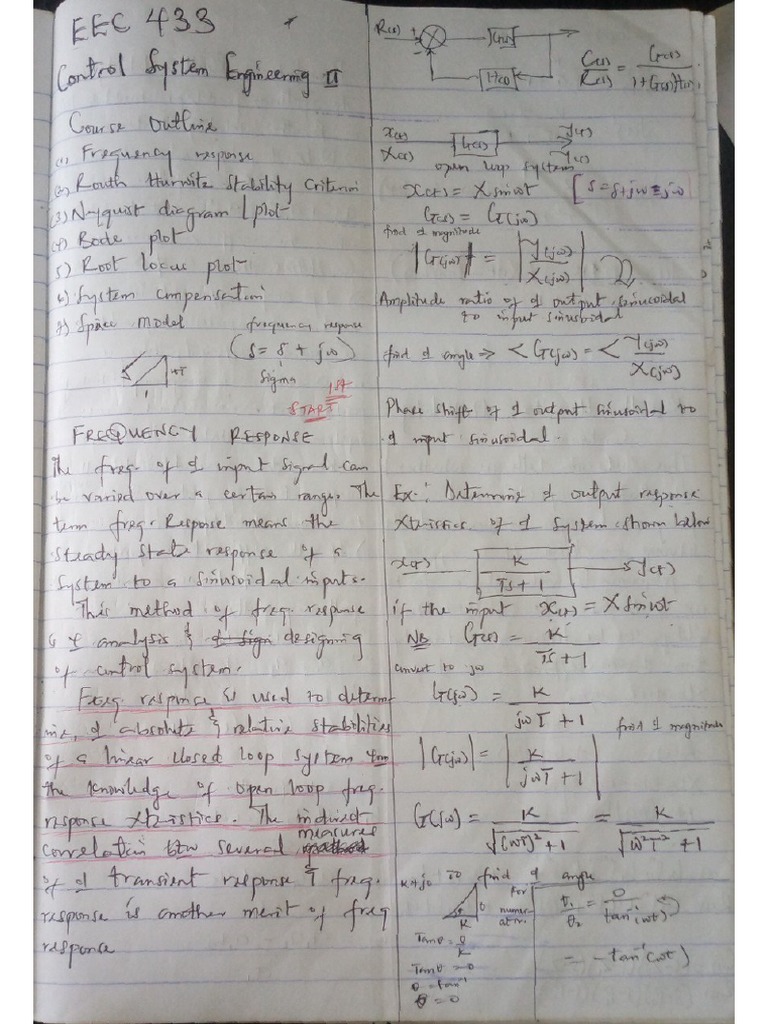 EEC 433
Control System Engineering II
Course Outline
(1) Frequency response
(2) Routh Hurwitz Stability Criterion
(3) Nyquist diagram / plot
(4) Bode plot
5) Root locus plot
6) System compensation
7) Space Model
frequency response
(s = δ + jω)
sigma
START 1ST
FREQUENCY RESPONSE
The freq. of d input signal can
be varied over a certain range. The
term freq. Response means the
steady state response of a
system to a sinusoidal inputs.
This method of freq. response
is 4 analysis & designing
of control system.
Freq. response is used to determ-
ine, d absolute & relative stabilities
of a linear closed loop system from
the knowledge of open loop freq.
response xteristics. The indirect
correlation btw several measures
of d transient response & freq.
response is another merit of freq
response
R(s) + - G(s)
H(s)
C(s)/R(s) = G(s)/1+G(s)H(s)
x(t) G(s) y(t)
X(s) Y(s)
open loop system
x(t) = X sin ωt [s = δ+jω = jω
G(s) = G(jω)
find d magnitude
|G(jω)| = |Y(jω)/X(jω)|
Amplitude ratio of d output sinusoidal
to input sinusoidal
find d angle => <G(jω) = < Y(jω)/X(jω)
Phase shift of d output sinusoidal to
d input sinusoidal.
Ex: Determine d output response
xteristics of d system shown below
x(t) K/Ts+1 y(t)
if the input x(t) = X sin ωt
NB G(s) = K/Ts+1
convert to jω
G(jω) = K/jωT+1
find d magnitude
|G(jω)| = |K/jωT+1|
G(jω) = K/√(ωT)²+1 = K/√ω²T²+1
K+j0 To find d angle
for numerator.
0
K
Tanθ = 0/K
Tanθ = 0
θ = tan⁻¹
θ = 0
θ₁/θ₂ = 0/tan⁻¹(ωt)
= -tan⁻¹(ωt)